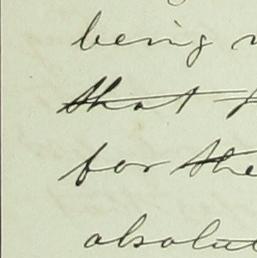 being
that
for the
absolut